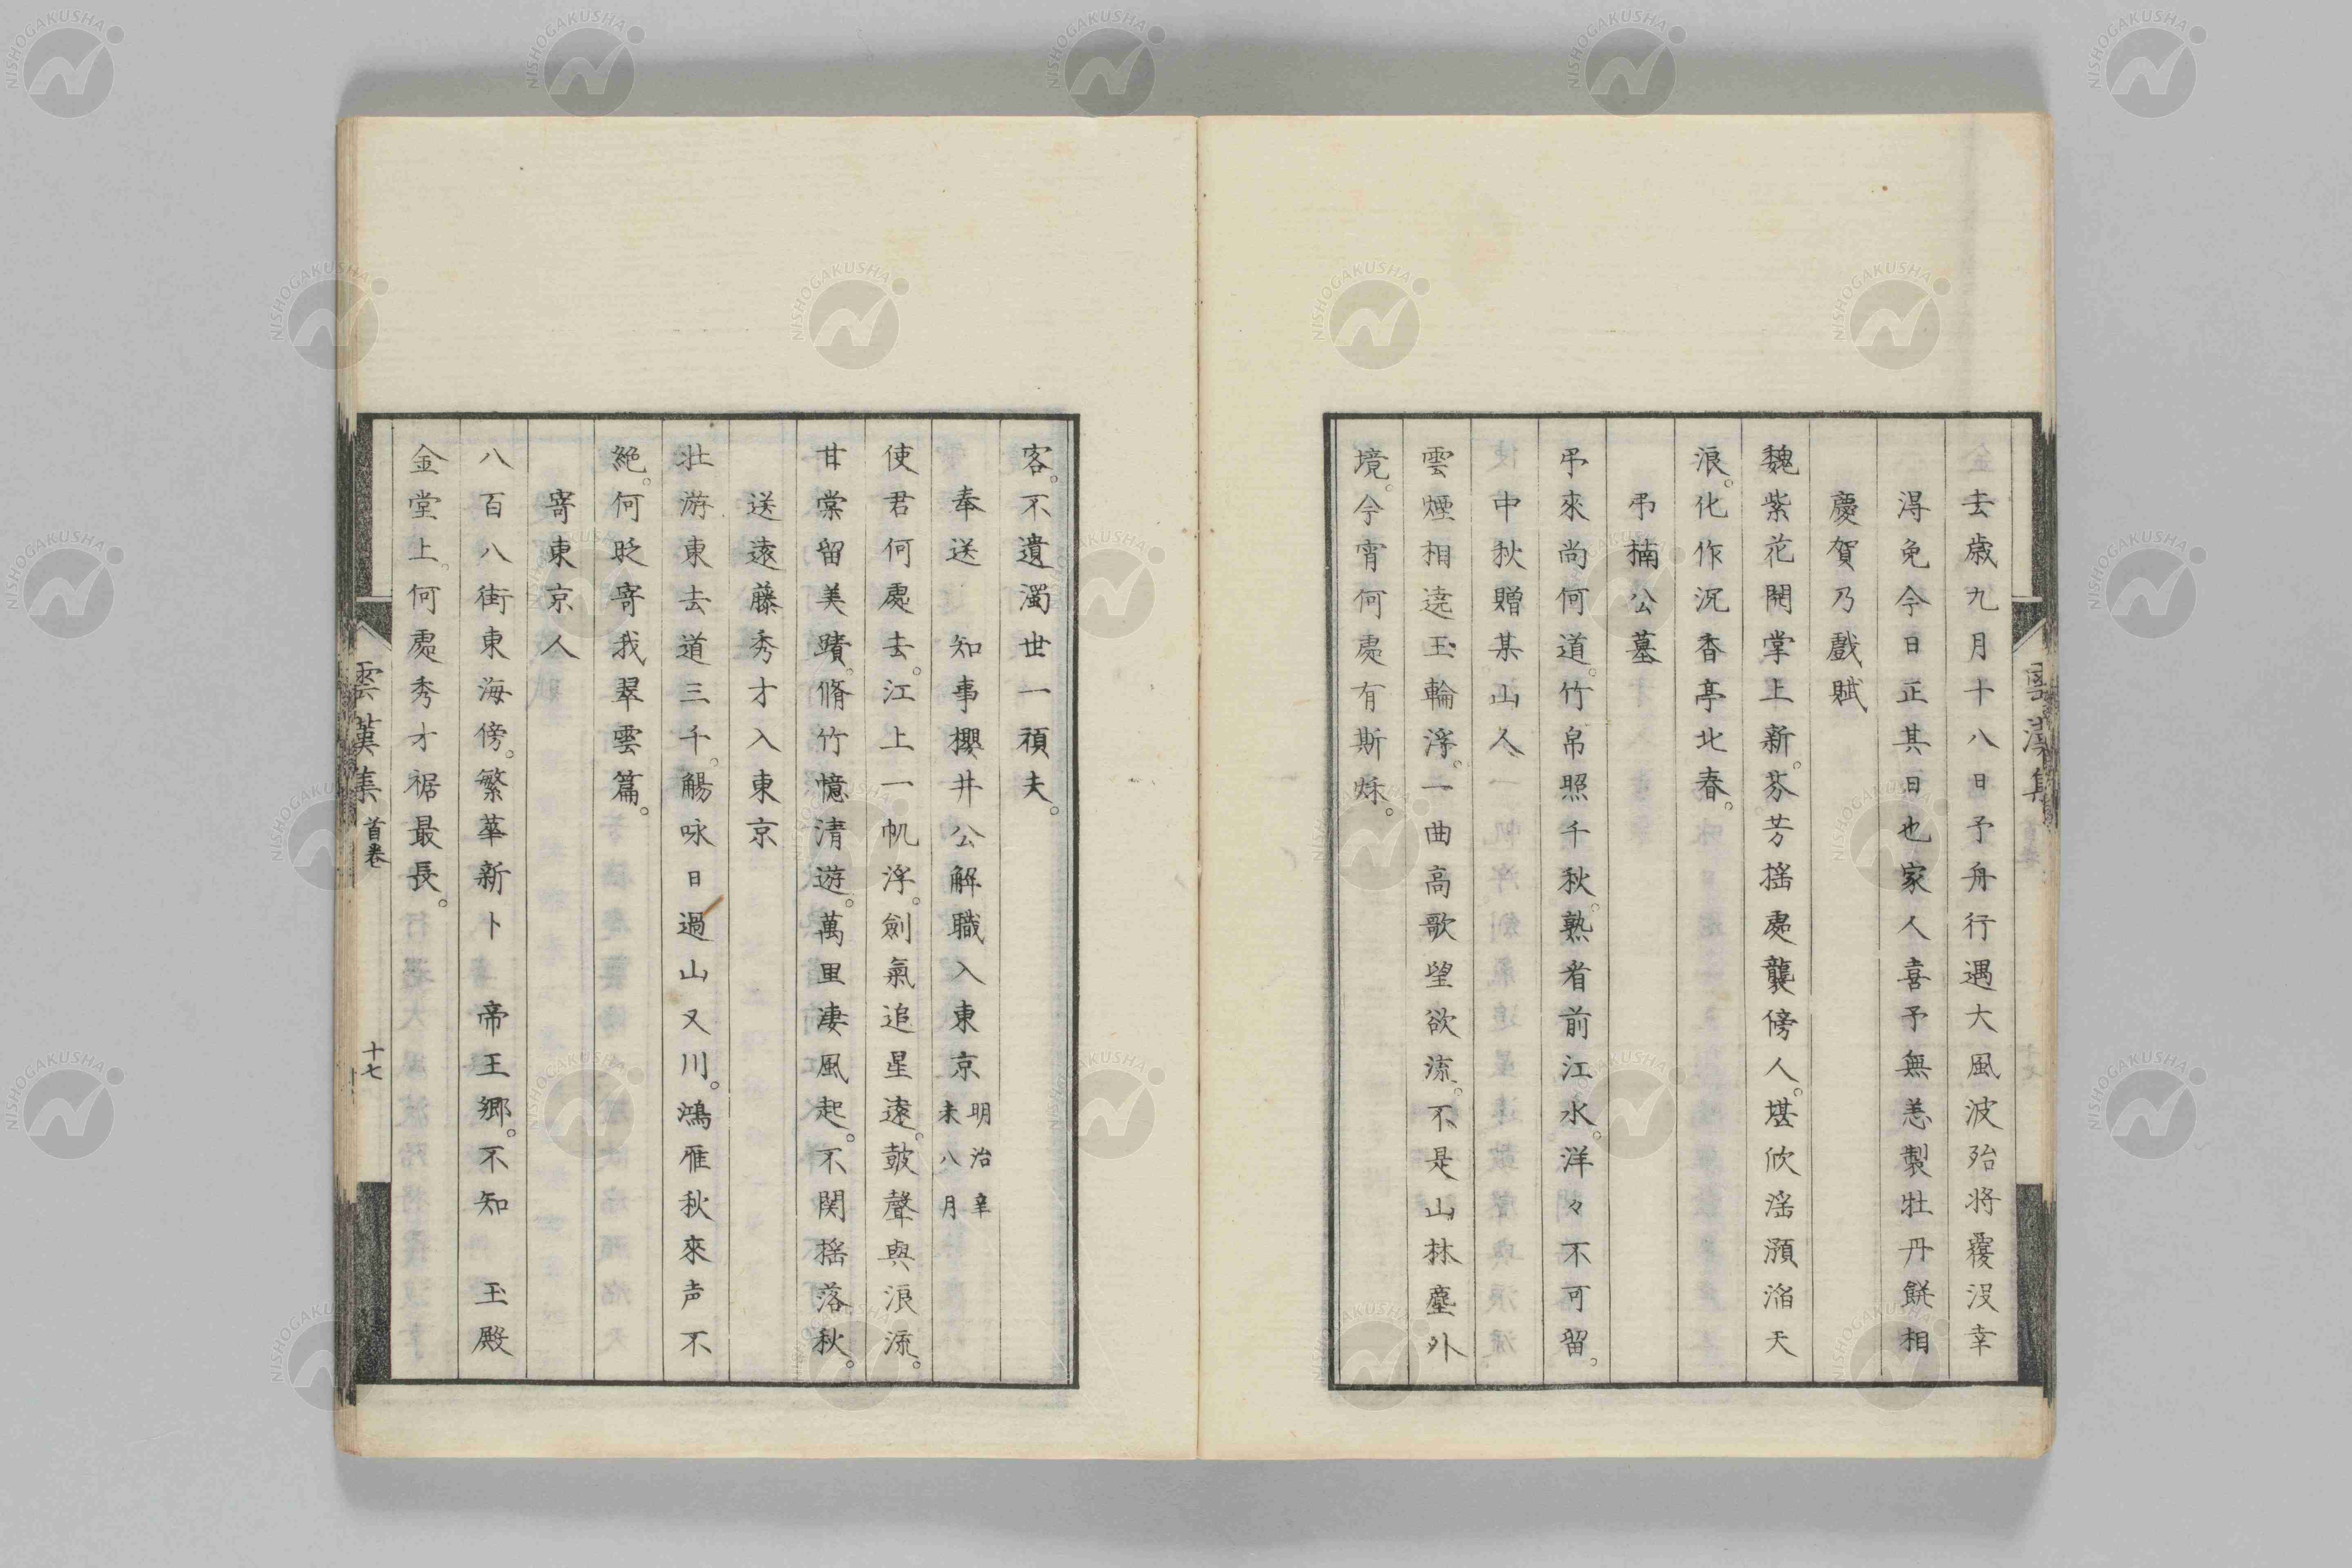 去歳九月十八日予舟行遇大風波殆将覆没幸
淂免今日正其日也家人喜予無恙製牡丹餅相
慶賀乃戯賦
魏紫花開掌上新。芬芳揺處襲傍人。堪欣滛滪滔天
浪。化作沉香亭北春。
弔楠公墓
弔來尚何道。竹帛照千秋。熟看前江水。洋々不可留。
中秋贈某山人
雲煙相遶玉輪浮。一曲高歌望欲流。不是山林塵外
境。今宵何處有斯秌。
雲漢集
客。不遺濁世一頑夫。
奉送 知事櫻井公解職入東京 明治辛未八月
使君何處去。江上一帆浮。劍氣追星遠。鼓聲與浪流。
甘棠留美蹟。脩竹憶清遊。萬里凄風起。不関揺落秋。
送遠藤秀才入東京
壮游東去道三千。觴咏日過山又川。鴻雁秋來声不
絶。何眨寄我翠雲篇。
寄東京人
八百八街東海傍。繁華新卜 帝王郷。不知 玉殿
金堂上。何處秀才裾最長。
雲漢集 首巻 十七
NISHOGAKUSHA